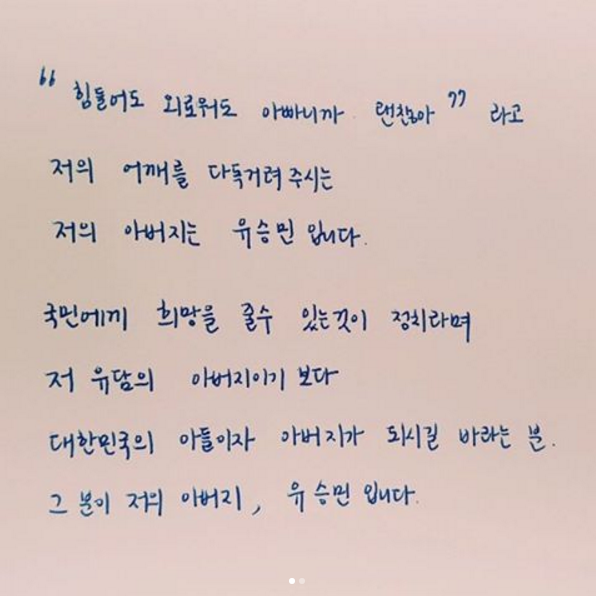 "힘들어도 외로워도 아빠니까 괜찮아" 라고
저의 어깨를 다독거려 주시는
저의 아버지는 유승민 입니다.
국민에게 희망을 줄수 있는것이 정치라며
저 유담의 아버지이기 보다
대한민국의 아들이자 아버지가 되시길 바라는 분.
그 분이 저의 아버지, 유승민 입니다.